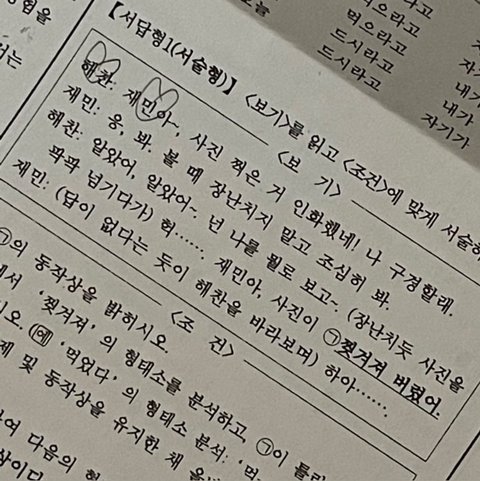 험을
는
늘
라고
먹으라고
드시라고
드시라고
자
자기
내가
내가
자기가
【서답형1(서술형)】 <보기>를 읽고 <조건>에 맞게 서술하
<보 기>
혜찬: 재민아~, 사진 찍은 거 인화했네! 나 구경할래.
재민: 응, 봐. 볼 때 장난치지 말고 조심히 봐.
혜찬: 알았어, 알았어~. 넌 나를 뭘로 보고~ (장난치듯 사진을
팍팍 넘기다가) 헉…… 재민아, 사진이 ㉠찢겨져 버렸어.
재민: (답이 없다는 듯이 혜찬을 바라보며) 하아……
㉠의 동작상을 밝히시오.
<조 건>
에서 '찢겨져'의 형태소를 분석하고, ㉠이 틀린
시오. (예 '먹었다'의 형태소 분석: '먹
제 및 동작상을 유지한 채 올
하여 다음의 형